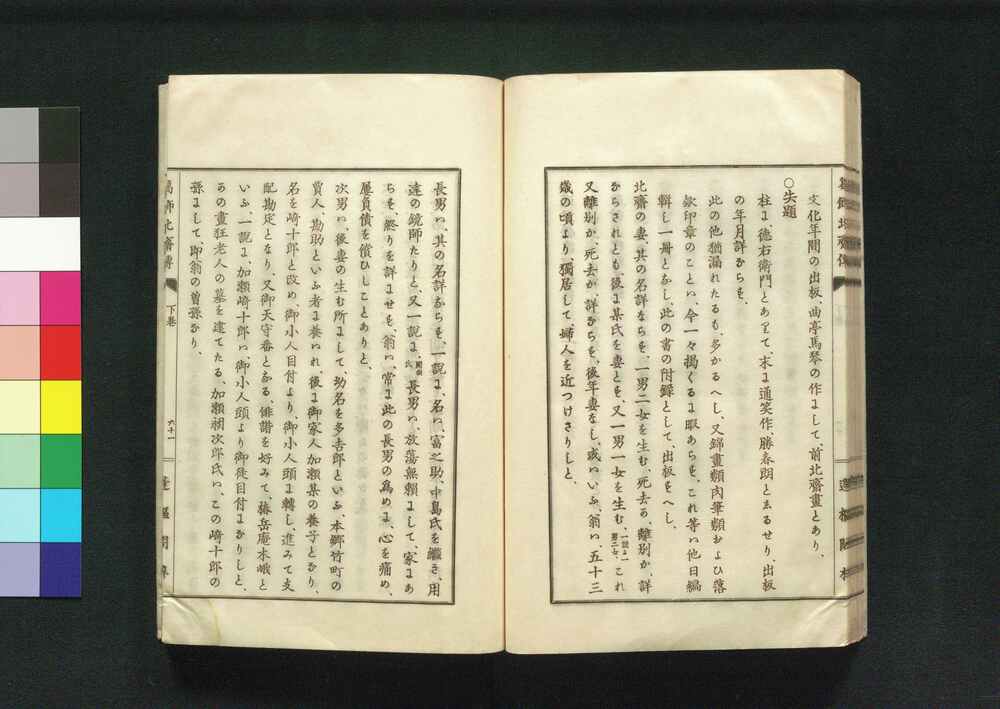 文化年間の出板、曲亭馬琴の作にして、前北齋畫とあり、
○失題
柱に、徳右衛門とありて、末に通笑作、勝春朗としるせり、出板
の年月詳ならず、
此の他猶漏れたるも、多かるへし、又錦畫類肉筆類および落
欵印章のことハ、今一々掲くるに暇あらず、これ等ハ他日編
輯し一冊となし、此の書の附録として、出板すへし、
北齋の妻、其の名詳ならず、一男二女を生む、死去か、離別か、詳
ならされとも、後に某氏を妻とす、又一男一女を生む、一説に二男二女、これ
又離別か、死去か、詳ならず、後年妻なし、或ハいふ、翁ハ、五十三
歳の頃より、獨居して、婦人を近つけさりしと、
長男ハ、其の名詳ならず、一説に、名ハ、富之助、中島氏を繼き、用
達の鏡師たりと、又一説に、長男ハ、放蕩無頼にして、家にあ
らず、終りを詳にせず、翁ハ、常に此の長男の爲めに、心を痛め、
屡負債を償ひしことありと、
次男ハ、後妻の生む所にして、幼名を多吉郎といふ、本郷竹町の
賈人、勘助といふ者に養ハれ、後に御家人加瀬某の養子となり、
名を崎十郎と改め、御小人目付より、御小人頭に轉し、進みて支
配勘定となり、又御天守番となる、俳諧を好みて、椿岳庵木峨と
いふ、一説に、加瀬崎十郎ハ、御小人頭より御徒目付になりしと、
かの畫狂老人の墓を建てたる、加瀬昶次郎氏ハ、この崎十郎の
孫にして、即翁の曽孫なり、
飾北齋傳
下巻
六十一